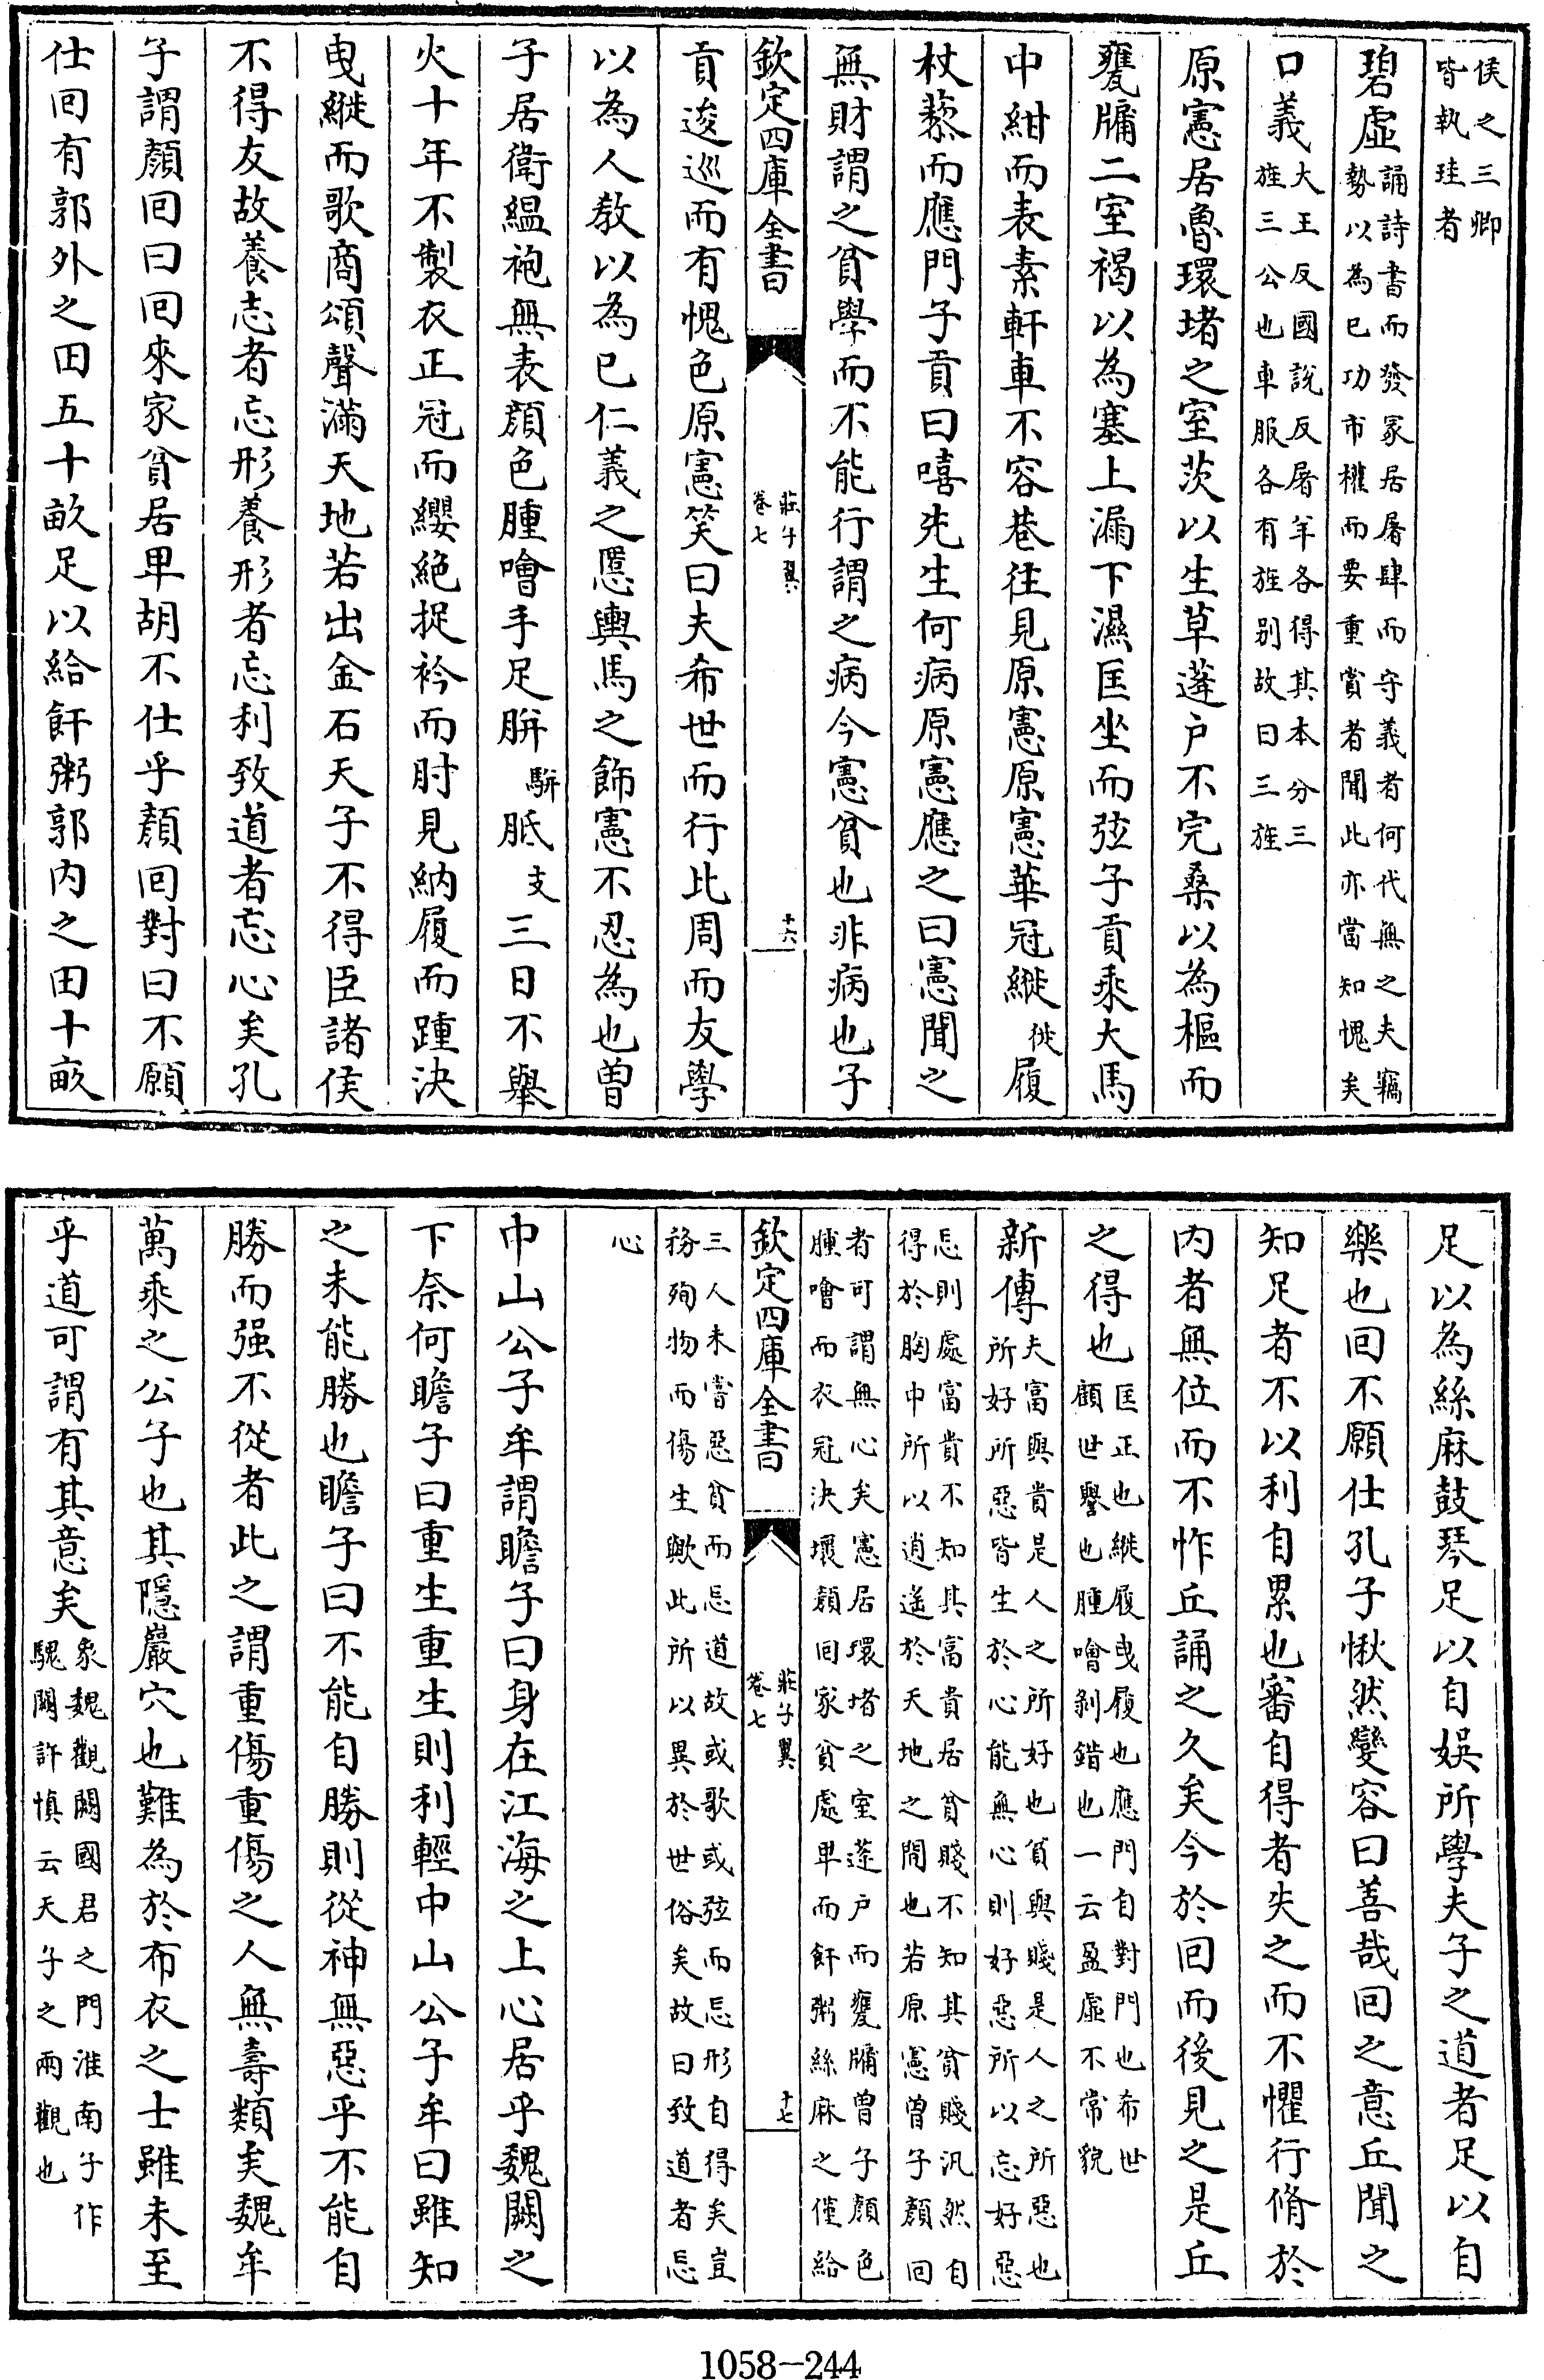 侯之三卿
皆執珪者
碧虛誦詩書而發冢居屠肆而守義者何代無之夫竊
勢以為已功市權而要重賞者聞此亦當知愧矣
口義大王反國說反屠羊各得其本分三
旌三公也車服各有旌别故曰三旌
原憲居魯環堵之室茨以生草蓬户不完桑以為樞而
甕牖二室褐以為塞上漏下濕匡坐而弦子貢乘大馬
中紺而表素軒車不容巷往見原憲原憲華冠縰徙履
杖藜而應門子貢曰嘻先生何病原憲應之曰憲聞之
無財謂之貧學而不能行謂之病今憲貧也非病也子
欽定四庫全書
莊子翼
卷七
十六
貢逡巡而有愧色原憲笑曰夫希世而行比周而友學
以為人教以為已仁義之慝輿馬之飾憲不忍為也曽
子居衛緼袍無表顔色腫噲手足胼駢胝支三日不舉
火十年不製衣正冠而纓絶捉衿而肘見納履而踵決
曳縰而歌商頌聲滿天地若出金石天子不得臣諸侯
不得友故養志者忘形養形者忘利致道者忘心矣孔
子謂顔回曰回來家貧居卑胡不仕乎顔回對曰不願
仕回有郭外之田五十畝足以給飦粥郭内之田十畝
足以為絲麻鼓琴足以自娱所學夫子之道者足以自
樂也回不願仕孔子愀然變容曰善哉回之意丘聞之
知足者不以利自累也審自得者失之而不懼行脩於
内者無位而不怍丘誦之久矣今於回而後見之是丘
之得也匡正也縰履曳履也應門自對門也希世
顧世譽也腫噲剥錯也一云盈虛不常貌
新傳夫富與貴是人之所好也貧與賤是人之所惡也
所好所惡皆生於心能無心則好惡所以忘好惡
忘則處富貴不知其富貴居貧賤不知其貧賤汎然自
得於胸中所以逍遙於天地之間也若原憲曽子顔回
者可謂無心矣憲居環堵之室蓬户而甕牖曽子顔色
腫噲而衣冠決壞顔回家貧處卑而飦粥絲麻之僅給
欽定四庫全書
莊子翼
卷七
十七
三人未嘗惡貧而忘道故或歌或弦而忘形自得矣豈
務殉物而傷生歟此所以異於世俗矣故曰致道者忘
心
中山公子牟謂瞻子曰身在江海之上心居乎魏闕之
下奈何瞻子曰重生重生則利輕中山公子牟曰雖知
之未能勝也瞻子曰不能自勝則從神無惡乎不能自
勝而强不從者此之謂重傷重傷之人無壽類矣魏牟
萬乘之公子也其隱巖穴也難為於布衣之士雖未至
乎道可謂有其意矣象魏觀闕國君之門淮南子作
騩闕許慎云天子之兩觀也
1058-244